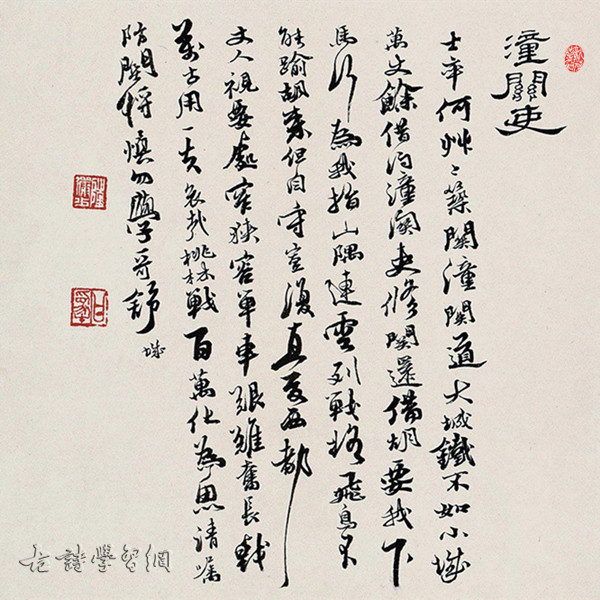 潼關吏
士卒何艸々築関潼関道大城鐵不如小城
萬丈餘借问潼関吏修関還備胡要我下
馬行為我指山隅連雲列戰格飛鳥不
能踰胡来但自守豈復直憂西都
丈人視要處窄狹容單車艱難奮長戟
萬古用一夫哀哉桃林戰百萬化為魚請囑
防関将慎勿學哥舒
城
古詩學習網